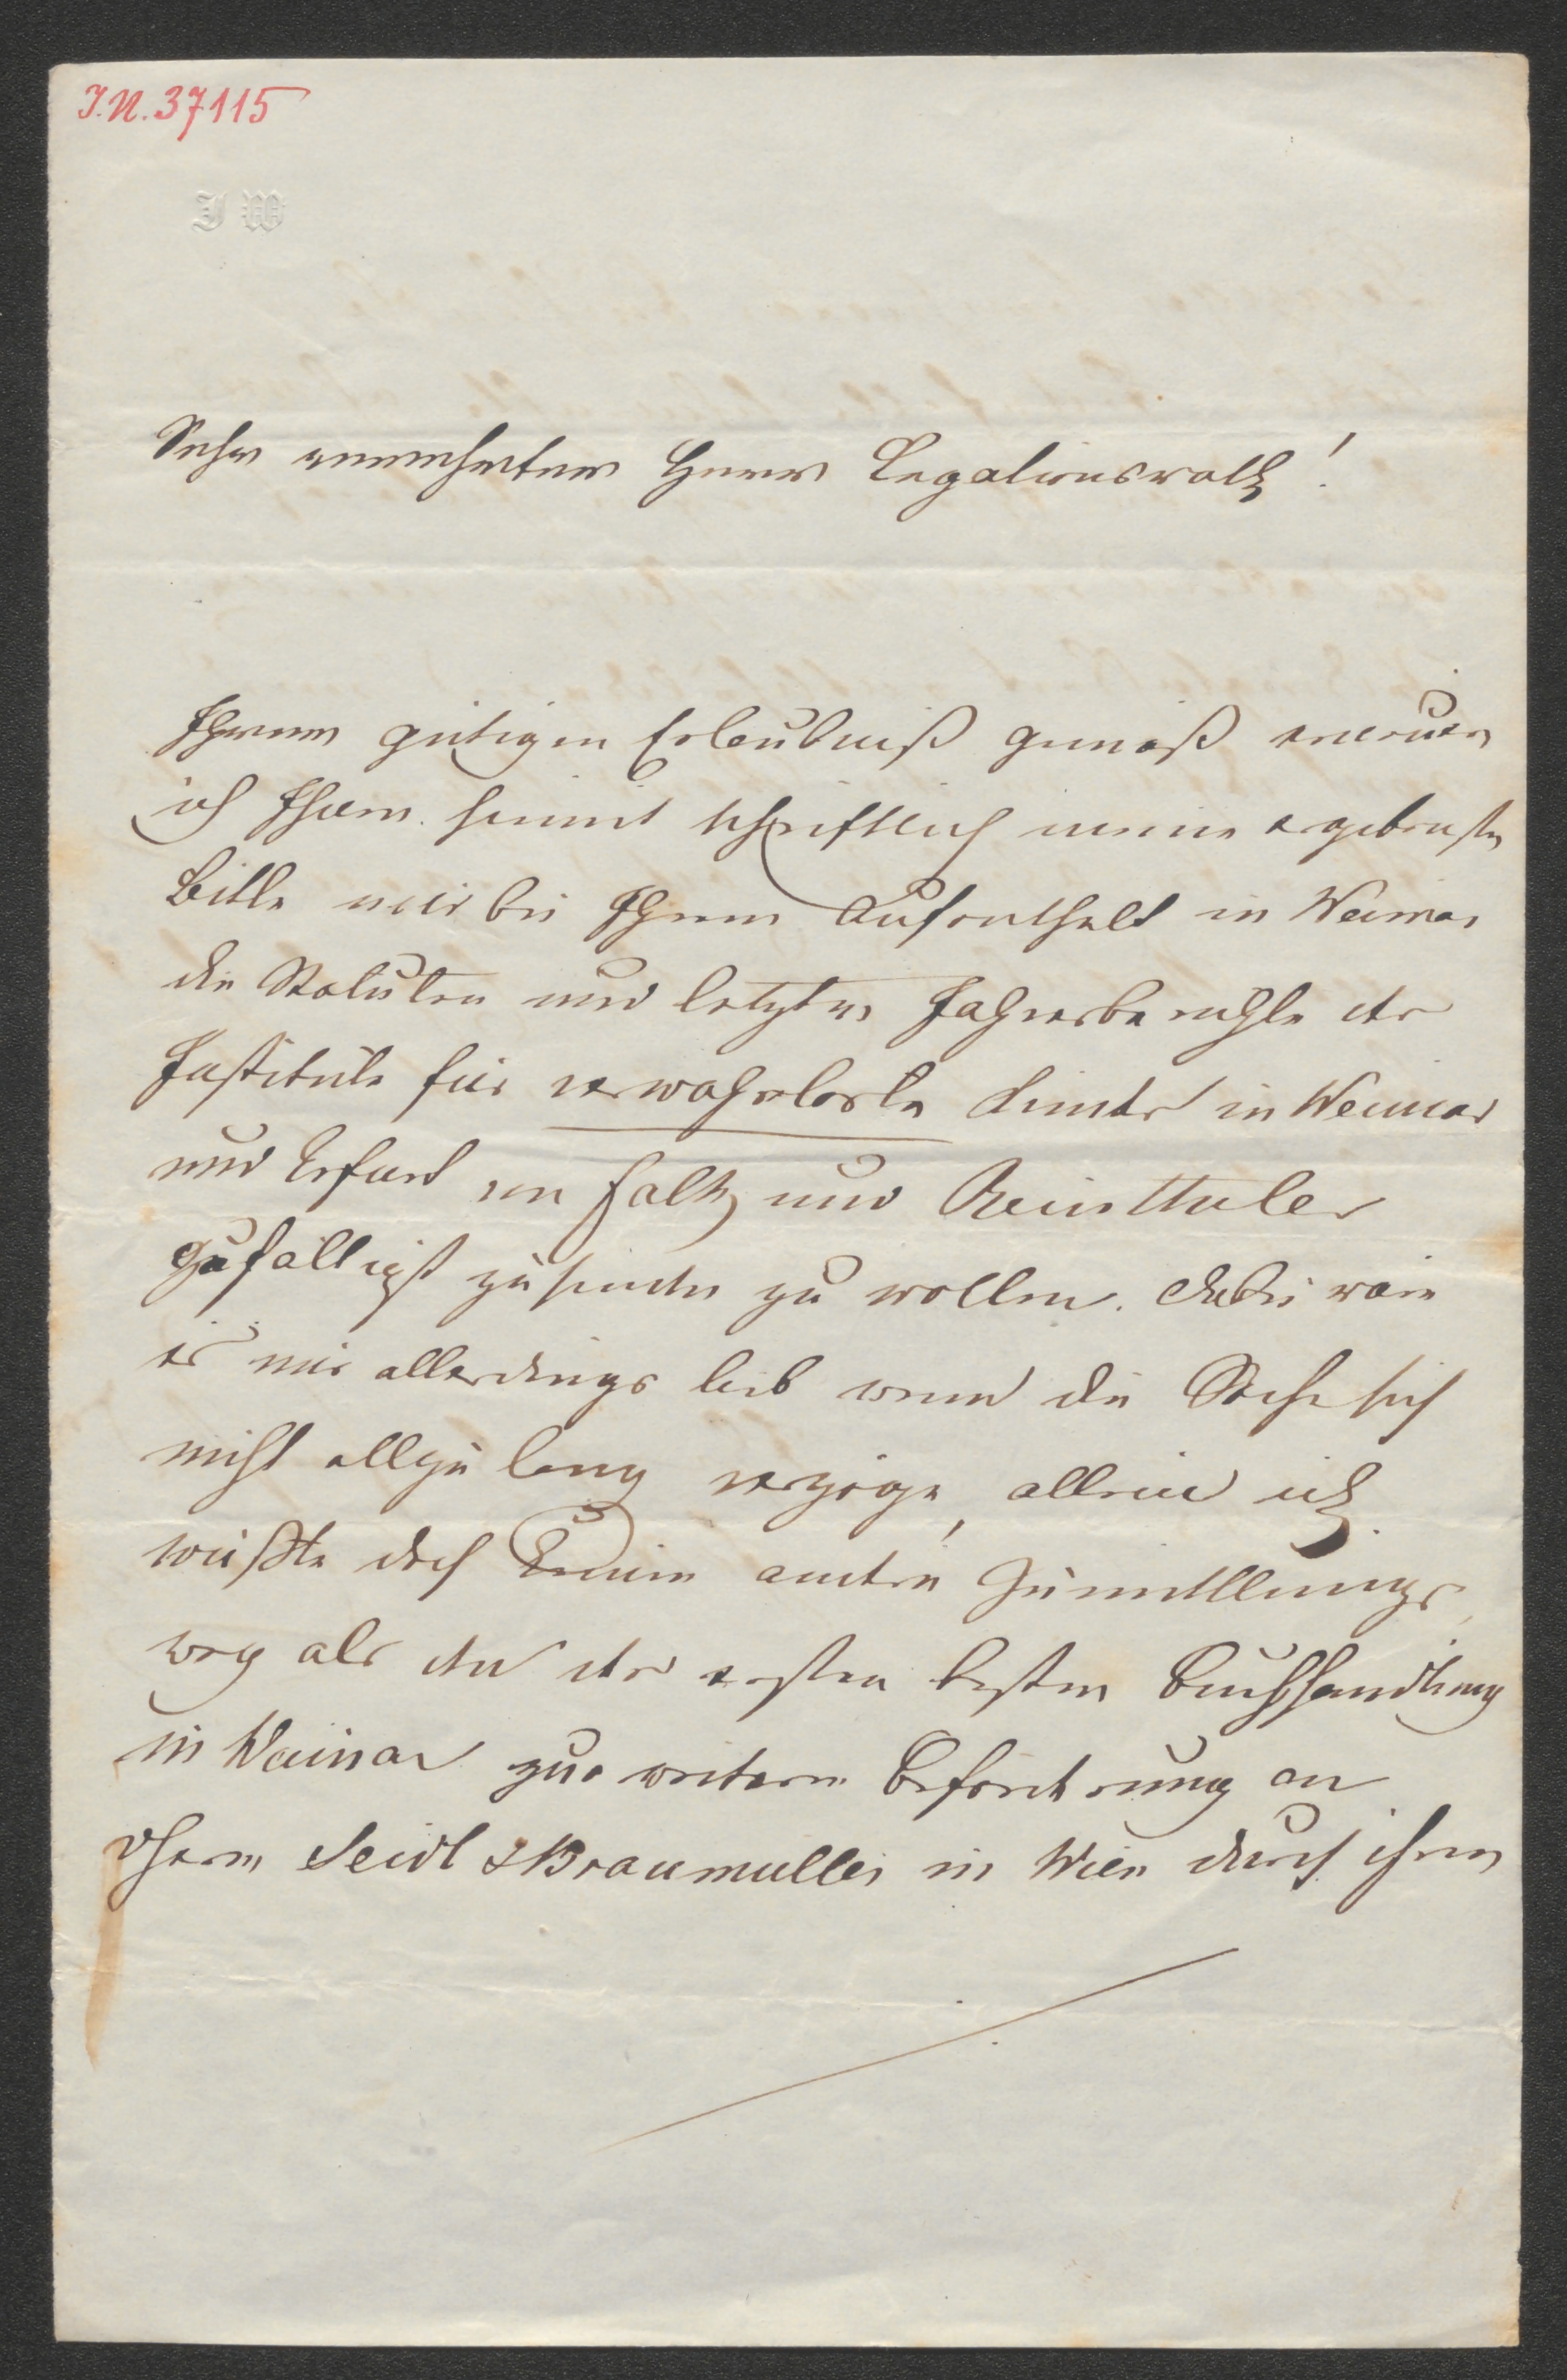 I.N. 37115
I W
Sehr verehrtester Herr Legationsrath!
Ihrer gütigen Erlaubniß gemäß erneuere
ich Ihnen hiemit schriftlich meine ergebenste
Bitte mir bei Ihrem Aufenthalt in Weimar
die Statuten und letzten Jahresberichte der
Institute für verwahrloste Kinder in Weimar
und Erfurt von Falk und Reinthaler
gefälligst zusenden zu wollen. Dabei wäre
es mir allerdings lieb wenn die Sache sich
nicht allzu lang verzöge, allein ich
wüßte doch keinen andern Zumittlungs
weg als den der ersten besten Buchhandlung
in Weimar zur weitern Beförderung an
Herrn Seidl & Braumüller in Wien durch ihren